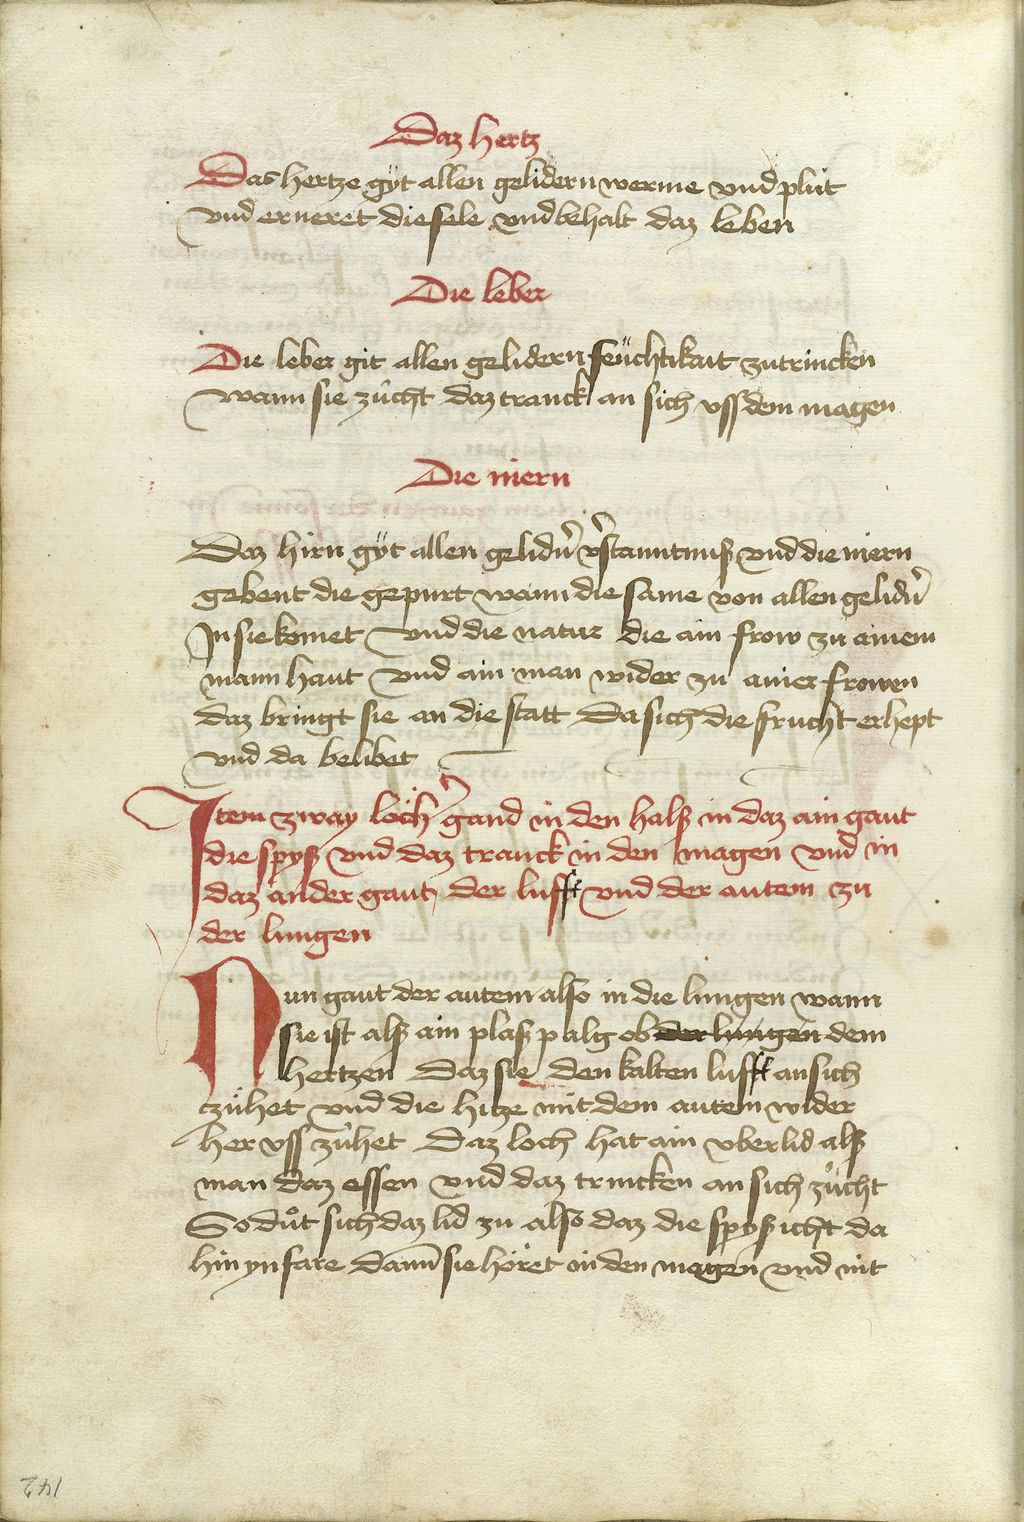 Daz hertz
Das hertze gyt allen gelidern werme vnd plut
vnd erneret die sele vnd behalt daz leben
Die leber
Die leber git allen gelidern feüchtikait zutrincken
wann sie zücht daz tranck an sich vss dem magen
Die niern
Daz hirn gyt allen gelidn̄ v̄stanntniß vnd die niern
gebent die gepurt wann die same von allen gelidn̄
In sie komet vnd die natur die ain frow zu ainem
mann haut vnd ain man wider zu ainer frowen
daz bringt sie an die statt Da sich die frucht erhept
vnd da belibet
Item zway löcher gand in den halß in daz ain gaut
die spyß vnd daz tranck in den magen vnd in
daz ander gaut der lufft vnd der autem zu
der lungen
Nun gaut der autem also in die lungen wann
sie ist alß ain plaß palg ob der lungen dem
hertzen Daz sie den kalten lufft an sich
zühet vnd die hitze mit dem autem wider
her vss zühet Daz loch hat ain vberlid alß
man daz essen vnd daz trincken an sich zücht
So důt sich daz lid zu also daz die spyß icht da
hin yn fare dann sie höret in den magen vnd nit
142